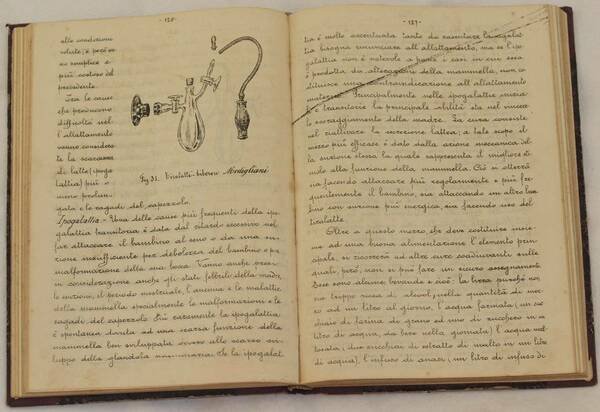 - 126 -
alle condizioni
volute; è però me
no semplice e
più costoso del
precedente.
Tra le cause
che producono
difficoltà nel
l'allattamento
vanno considera
te la scarsezza
di latte (ipoga
lattia) più o
meno prolun-
gata e le ragadi del capezzolo.
Fig. 31. Tiralatte-poppatoio Modigliani
Ipogalattia.- Una delle cause più frequenti della ipo
galattia transitoria è data dal ritardo eccessivo nel
far attaccare il bambino al seno o da una su
zione insufficiente per debolezza del bambino o per
malformazione della sua bocca. Vanno anche prese
in considerazione anche gli stati febbrili della madre,
le emozioni, il periodo mestruale, l'anemia e le malattie
della mammella specialmente le malformazioni e le
ragadi del capezzolo. Più raramente la ipogalattia
è spontanea dovuta ad una scarsa funzione della
mammella ben sviluppata ovvero allo scarso svi-
luppo della glandola mammaria. Se la ipogalat
- 127 -
tia è molto accentuata tanto da rasentare l'agalat
tia bisogna rinunciare all'allattamento, ma se l'ipo
galattia non è notevole a parte i casi in cui essa
è prodotta da alterazioni della mammella, non co
stituisce una controindicazione all'allattamento
materno. Principalmente nelle ipogalattie inizia
li e transitorie la principale abilità sta nel rinvi
gorire il coraggiamento della madre. La cura consiste
nel riattivare la secrezione lattea; a tale scopo il
mezzo più efficace è dato dalla azione meccanica del
la suzione stessa la quale rappresenta il migliore sti
molo alla funzione della mammella. Ciò si otterrà
sia facendo attaccare più regolarmente e più fre-
quentemente il bambino, sia attaccando un altro bam
bino con suzione più energica, sia facendo uso del
tiralatte.
Oltre a questo mezzo, che deve costituire insie
me ad una buona alimentazione l'elemento prin
cipale, si ricorrerà ad altre cure coadiuvanti sulle
quali, però, non si può fare un sicuro assegnamento.
Esse sono alcune bevande e cioè: la birra purché non
sia troppo ricca di alcool, nella quantità di mez
zo ad un litro al giorno, l'acqua farinata, (un cuc
chiaio di farina di grano ed uno di zucchero in un
litro di acqua, da bere nella giornata), l'acqua mal-
tosata, (due cucchiai di estratto di malto in un litro
di acqua), l'infuso di anaci, (un litro di infuso di